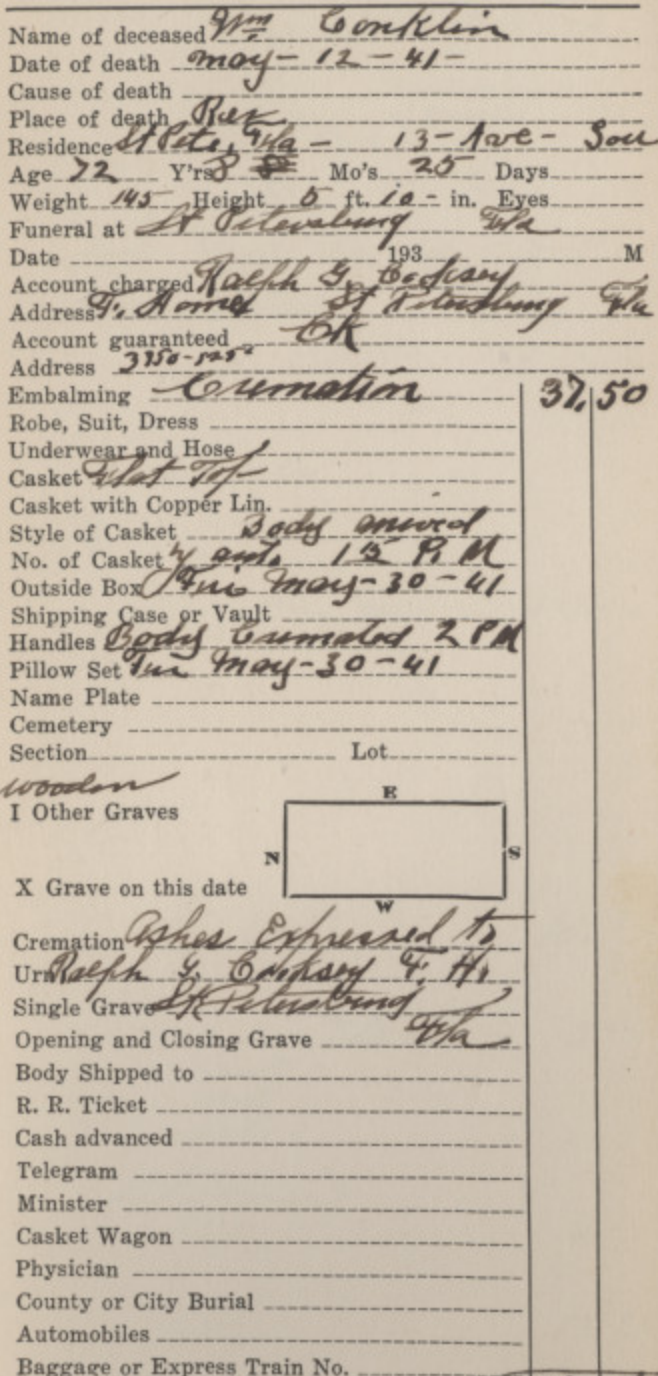 Name of deceased Wm Conklin
Date of death may - 12 - 41 -
Cause of death
Place of death Res
Residence St Pete, Fla - 13 - Ave - Sou
Age 72 Y'rs 8 Mo's 25 Days
Weight 145 Height 5 ft. 10 - in. Eyes
Funeral at St Petersburg Fla
Date 193 M
Account charged Ralph G. Cooksey
Address F. Home St Petersburg Fla
Account guaranteed OK
Address
Embalming Cremation 37.50
Robe, Suit, Dress
Underwear and Hose
Casket Flat Top
Casket with Copper Lin.
Style of Casket Body arrived
No. of Casket by auto 1 15 P. M
Outside Box Fri May - 30 - 41
Shipping Case or Vault
Handles Body Cremated 2 PM
Pillow Set Fri May - 30 - 41
Name Plate
Cemetery
Section Lot
wooden
E
I Other Graves
N S
X Grave on this date
W
Cremation Ashes Expressed to
Urn Ralph G. Cooksey F. H.
Single Grave St Petersburg
Opening and Closing Grave Fla
Body Shipped to
R. R. Ticket
Cash advanced
Telegram
Minister
Casket Wagon
Physician
County or City Burial
Automobiles
Baggage or Express Train No.